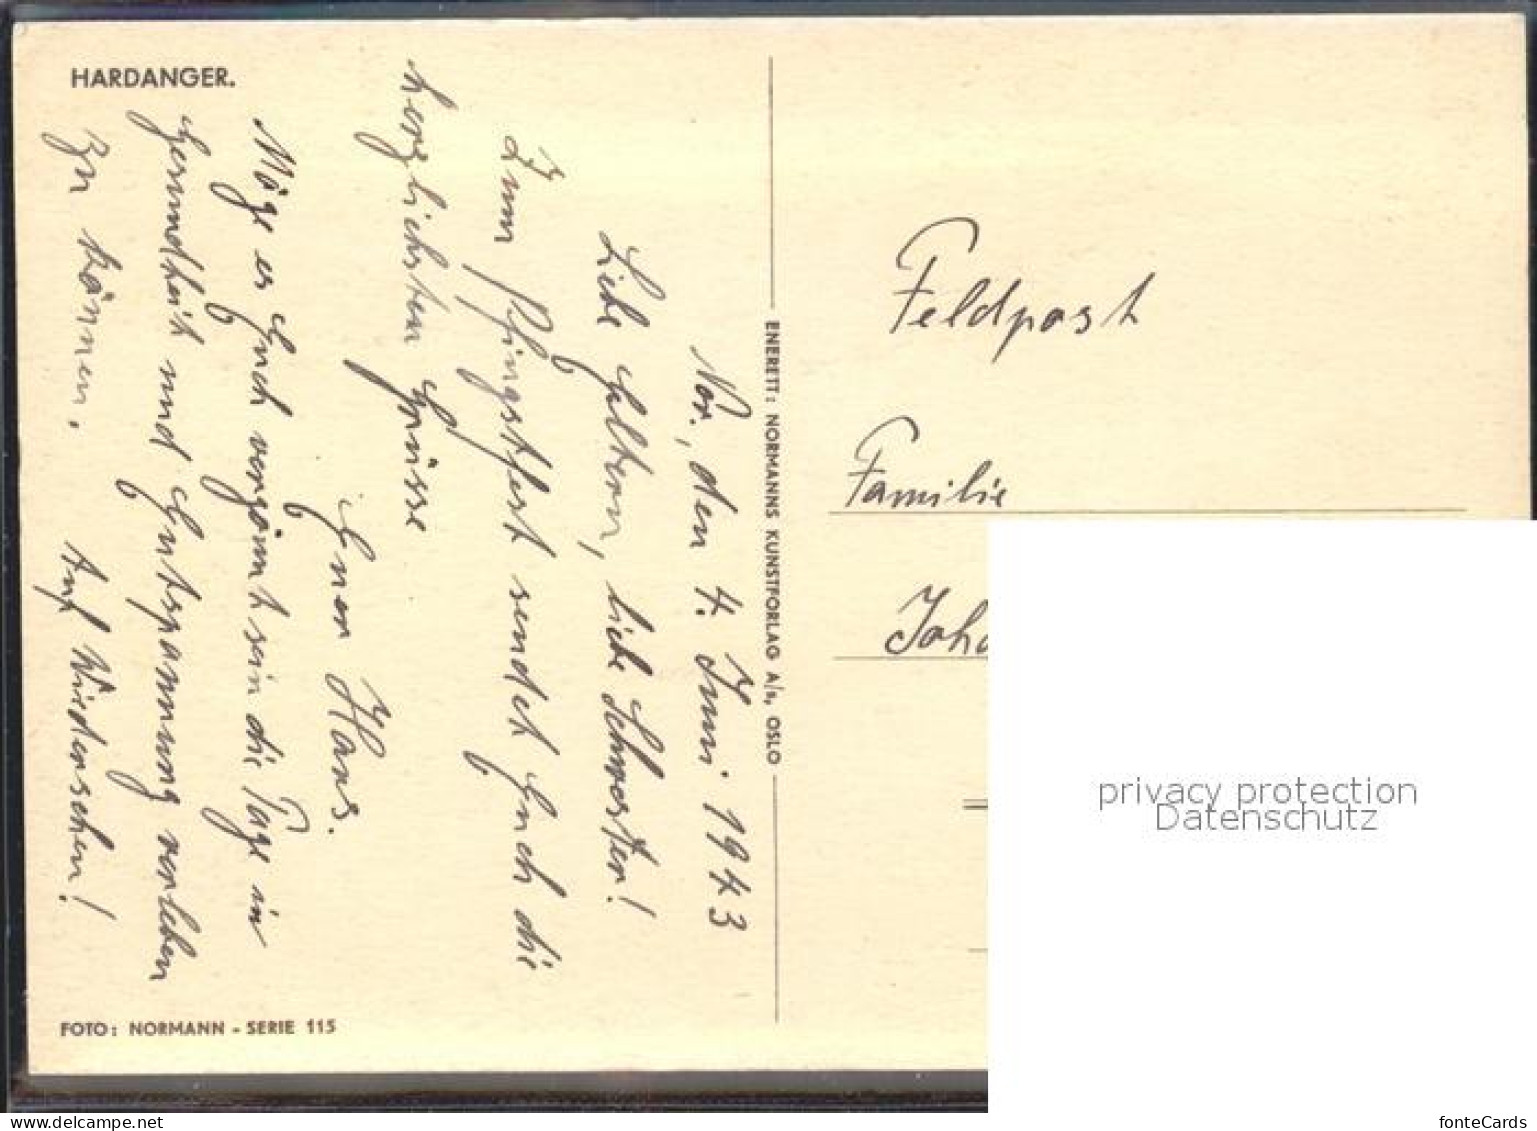 HARDANGER.
Nor., den 4. Juni 1943
Liebe Eltern, liebe Schwester!
Zum Pfingstfest sendet Euch die
herzlichsten Grüsse
Euer Hans.
Möge es Euch vergönnt sein die Tage in
Gesundheit und Entspannung verleben
zu können. Auf Wiedersehen!
FOTO: NORMANN - SERIE 115
ENERETT: NORMANNS KUNSTFORLAG A/s, OSLO
Feldpost
Familie
Joha
privacy protection
Datenschutz
fonteCards